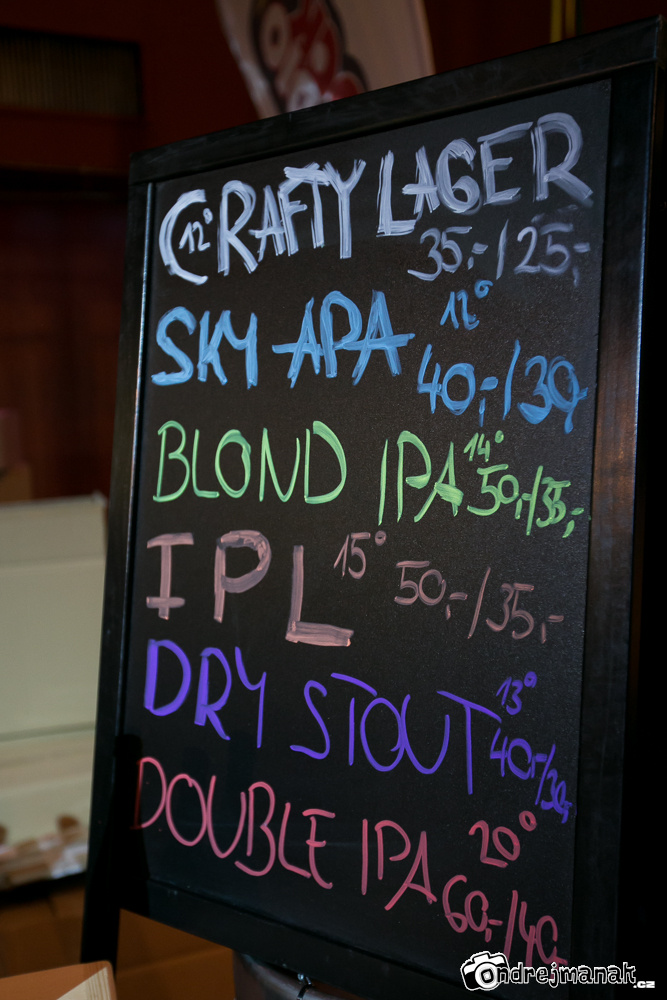 12° CRAFTY LAGER
35,-/25,-
SKY APA 12°
40,-/30,-
BLOND IPA 14°
50,-/35,-
IPL 15° 50,-/35,-
DRY STOUT 13°
40,-/30,-
DOUBLE IPA 20°
60,-/40,-
ondrejmanak.cz